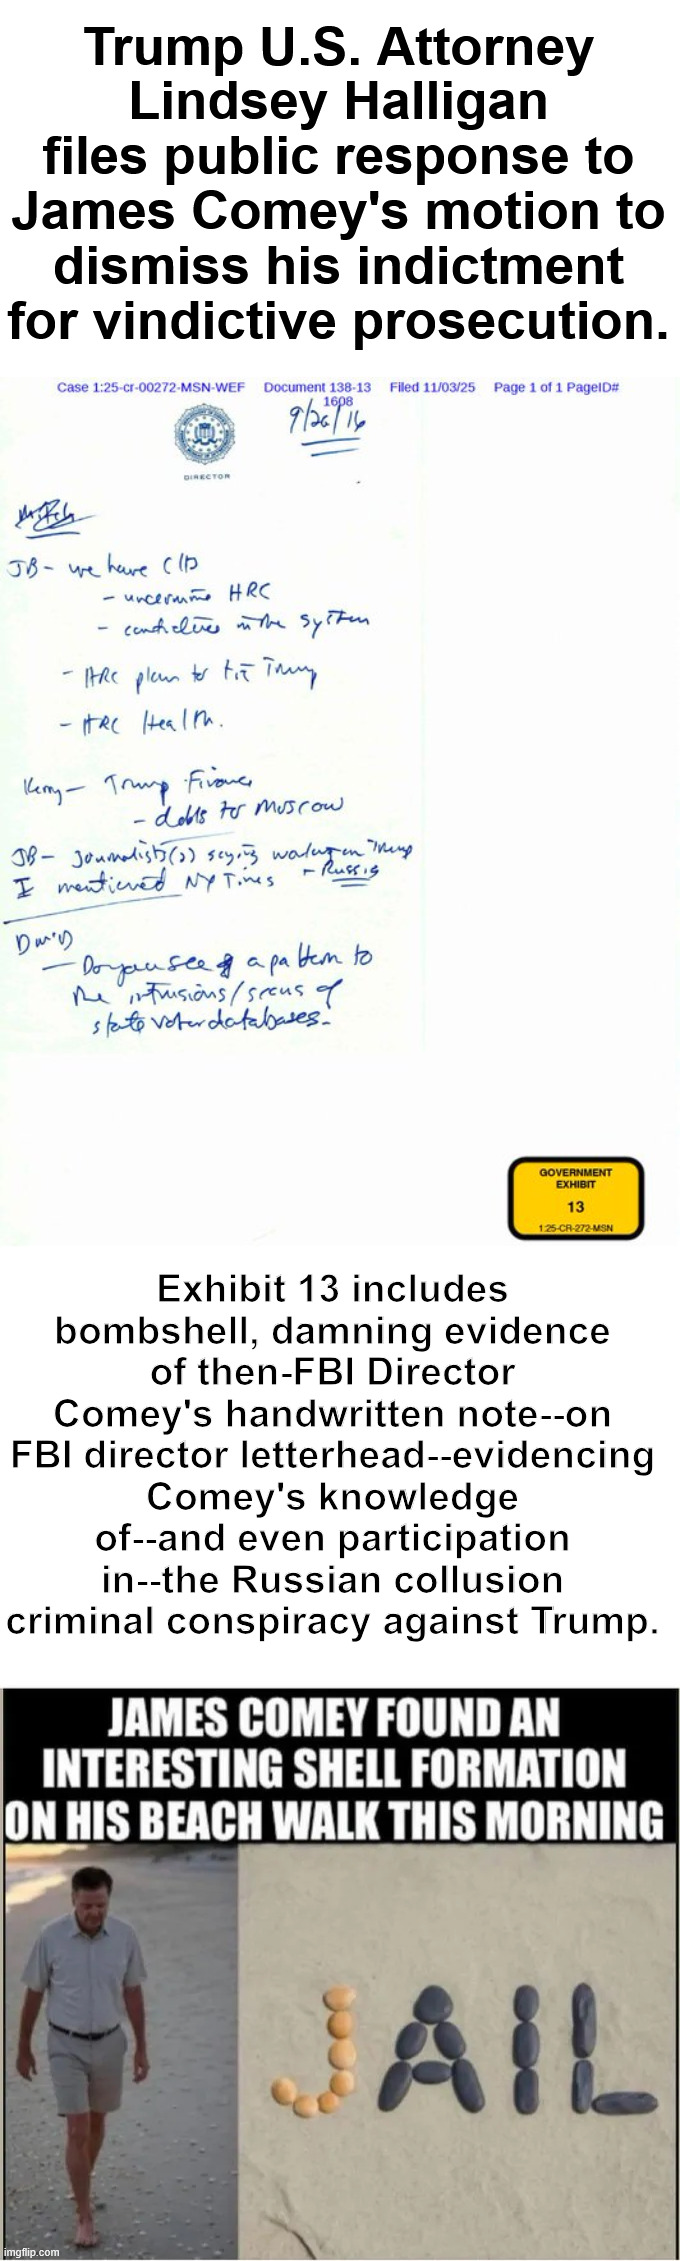 Trump U.S. Attorney
Lindsey Halligan
files public response to
James Comey's motion to
dismiss his indictment
for vindictive prosecution.
Case 1:25-cr-00272-MSN-WEF Document 138-13 Filed 11/03/25 Page 1 of 1 PageID#
1608
9/26/16
DIRECTOR
JB - we have CIA
- HRC
- candidates in the system
- HRC plan to tie Trump
- HRC Health.
Kerry - Trump Finance
- debts to Moscow
JB - Journalist(s) saying working on Trump
I mentioned NY Times - Russia
- Do you see a pattern to
the intrusions/scans of
state voter databases.
GOVERNMENT
EXHIBIT
13
1:25-CR-272-MSN
Exhibit 13 includes
bombshell, damning evidence
of then-FBI Director
Comey's handwritten note--on
FBI director letterhead--evidencing
Comey's knowledge
of--and even participation
in--the Russian collusion
criminal conspiracy against Trump.
JAMES COMEY FOUND AN
INTERESTING SHELL FORMATION
ON HIS BEACH WALK THIS MORNING
JAIL
imgflip.com